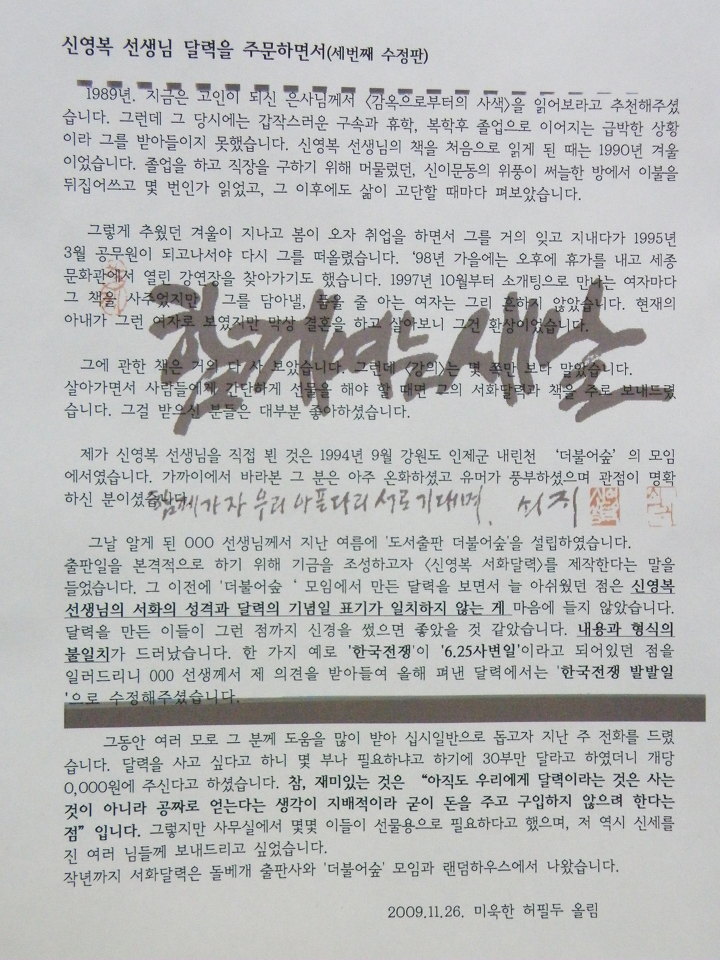 신영복 선생님 달력을 주문하면서(세번째 수정판)
1989년. 지금은 고인이 되신 은사님께서 <감옥으로부터의 사색>을 읽어보라고 추천해주셨
습니다. 그런데 그 당시에는 갑작스러운 구속과 휴학, 복학후 졸업으로 이어지는 급박한 상황
이라 그를 받아들이지 못했습니다. 신영복 선생님의 책을 처음으로 읽게 된 때는 1990년 겨울
이었습니다. 졸업을 하고 직장을 구하기 위해 머물렀던, 신이문동의 위풍이 써늘한 방에서 이불을
뒤집어쓰고 몇 번인가 읽었고, 그 이후에도 삶이 고단할 때마다 펴보았습니다.
그렇게 추웠던 겨울이 지나고 봄이 오자 취업을 하면서 그를 거의 잊고 지내다가 1995년
3월 공무원이 되고나서야 다시 그를 떠올렸습니다. '98년 가을에는 오후에 휴가를 내고 세종
문화관에서 열린 강연장을 찾아가기도 했습니다. 1997년 10월부터 소개팅으로 만나는 여자마다
그 책을 사주었지만 그를 담아낼, 품을 줄 아는 여자는 그리 흔하지 않았습니다. 현재의
아내가 그런 여자로 보였지만 막상 결혼을 하고 살아보니 그건 환상이었습니다.
함께여는 새날
그에 관한 책은 거의 다 사 보았습니다. 그런데 <강의>는 몇 쪽만 보다 말았습니다.
살아가면서 사람들에게 간단하게 선물을 해야 할 때면 그의 서화달력과 책을 주로 보내드렸
습니다. 그걸 받으신 분들은 대부분 좋아하셨습니다.
제가 신영복 선생님을 직접 뵌 것은 1994년 9월 강원도 인제군 내린천 '더불어숲'의 모임
에서였습니다. 가까이에서 바라본 그 분은 아주 온화하셨고 유머가 풍부하셨으며 관점이 명확
하신 분이셨습니다.
함께 가자 우리 아픈다리 서로 기대며.
그날 알게 된 OOO 선생님께서 지난 여름에 '도서출판 더불어숲'을 설립하였습니다.
출판일을 본격적으로 하기 위해 기금을 조성하고자 <신영복 서화달력>를 제작한다는 말을
들었습니다. 그 이전에 '더불어숲 ' 모임에서 만든 달력을 보면서 늘 아쉬웠던 점은 신영복
선생님의 서화의 성격과 달력의 기념일 표기가 일치하지 않는 게 마음에 들지 않았습니다.
달력을 만든 이들이 그런 점까지 신경을 썼으면 좋았을 것 같았습니다. 내용과 형식의
불일치가 드러났습니다. 한 가지 예로 '한국전쟁'이 '6.25사변일'이라고 되어있던 점을
일러드리니 OOO 선생께서 제 의견을 받아들여 올해 펴낸 달력에서는 '한국전쟁 발발일
'으로 수정해주셨습니다.
그동안 여러 모로 그 분께 도움을 많이 받아 십시일반으로 돕고자 지난 주 전화를 드렸
습니다. 달력을 사고 싶다고 하니 몇 부나 필요하냐고 하기에 30부만 달라고 하였더니 개당
0,000원에 주신다고 하셨습니다. 참, 재미있는 것은 "아직도 우리에게 달력이라는 것은 사는
것이 아니라 공짜로 얻는다는 생각이 지배적이라 굳이 돈을 주고 구입하지 않으려 한다는
점"입니다. 그렇지만 사무실에서 몇몇 이들이 선물용으로 필요하다고 했으며, 저 역시 신세를
진 여러 님들께 보내드리고 싶었습니다.
작년까지 서화달력은 돌베개 출판사와 '더불어숲' 모임과 랜덤하우스에서 나왔습니다.
2009.11.26. 미욱한 허필두 올림